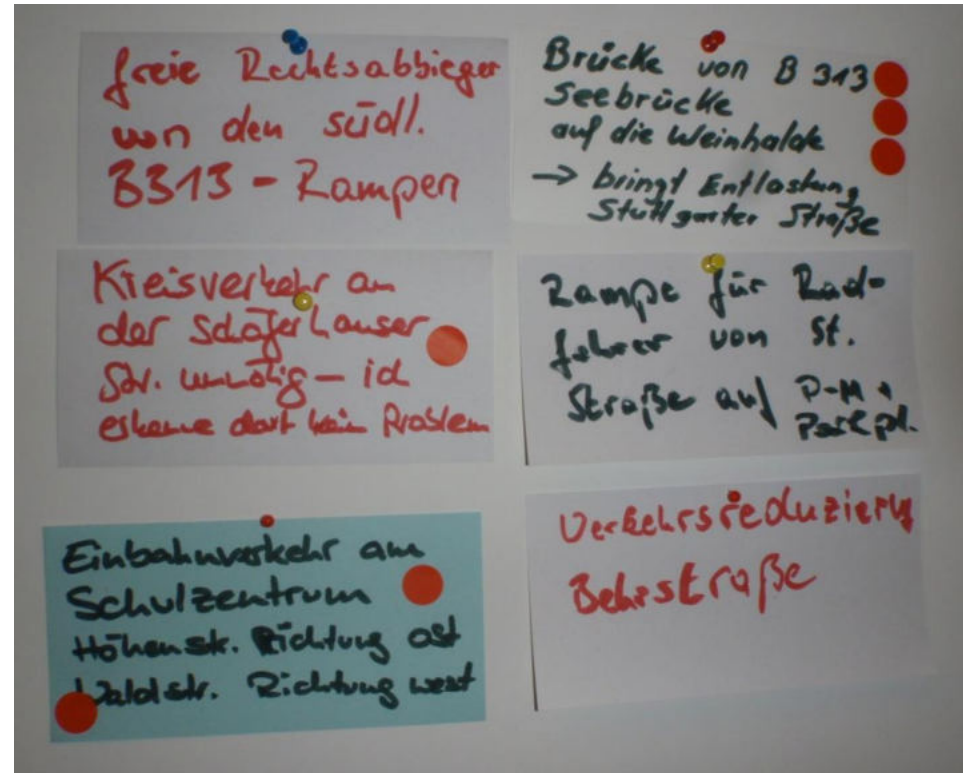 freie Rechtsabbieger
von den südl.
B313 - Rampen
Brücke von B 313
Seebrücke
auf die Weinhalde
→ bringt Entlastung
Stuttgarter Straße
Kreisverkehr an
der Schäferhauser
Str. unnötig - ich
erkenne dort kein Problem
Rampe für Rad-
fahrer von St.
Straße auf P-M +
Parkpl.
Einbahnverkehr am
Schulzentrum
Höhenstr. Richtung ost
Waldstr. Richtung west
Verkehrsreduzierung
Behrstraße